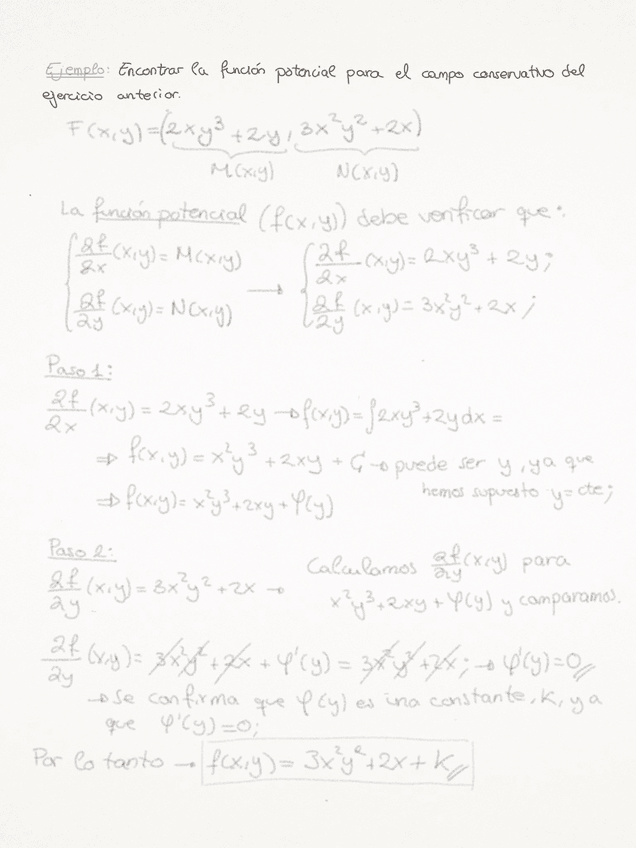 Ejemplo: Encontrar la función potencial para el campo conservativo del
ejercicio anterior.
F(x,y)=(2xy³+2y, 3x²y²+2x)
M(x,y) N(x,y)
La función potencial (f(x,y)) debe verificar que:
{∂f/∂x (x,y)= M(x,y) → {∂f/∂x (x,y)= 2xy³ + 2y;
{∂f/∂y (x,y)= N(x,y) {∂f/∂y (x,y)= 3x²y² + 2x;
Paso 1:
∂f/∂x (x,y) = 2xy³ + 2y → f(x,y)=∫2xy³+2y dx =
⇒ f(x,y) = x²y³ + 2xy + C₁ → puede ser y, ya que
hemos supuesto y=cte;
⇒ f(x,y)= x²y³+2xy+φ(y)
Paso 2:
∂f/∂y (x,y) = 3x²y² + 2x → Calculamos ∂f/∂y (x,y) para
x²y³+2xy + φ(y) y comparamos.
∂f/∂y (x,y)= 3x²y² + 2x + φ'(y) = 3x²y² + 2x; → φ'(y)=0
→ Se confirma que φ(y) es una constante, K, ya
que φ'(y)=0;
Por lo tanto → f(x,y) = 3x²y²+2x + K